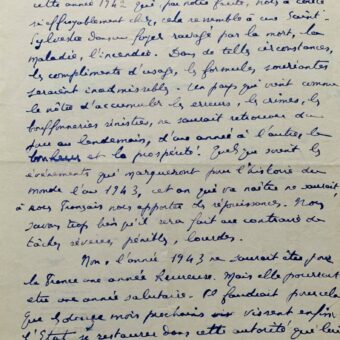 cette année 1942 qui, par notre faute, nous a coûté
si effroyablement cher, cela ressemble à une Saint-
Sylvestre dans un foyer ravagé par la mort, la
maladie, l'incendie. Dans de telles circonstances,
les compliments d'usage, les formules souriantes
seraient inadmissibles. Un pays qui vient comme
le nôtre d'accumuler les erreurs, les crimes, les
bouffonneries sinistres, ne saurait retrouver du
jour au lendemain, d'une année à l'autre, le
bonheur et la prospérité. Quels que soient les
événements qui marqueront pour l'histoire du
monde l'an 1943, cet an qui va naître ne saurait
à nous Français nous apporter des réjouissances. Nous
savons trop bien qu'il sera fait au contraire de
tâches sévères, pénibles, lourdes.
Non, l'année 1943 ne saurait être pour
la France une année heureuse. Mais elle pourrait
être une année salutaire. Il faudrait pour cela
que les douze mois prochains vissent enfin
l'Etat se restaurer dans cette autorité que lui